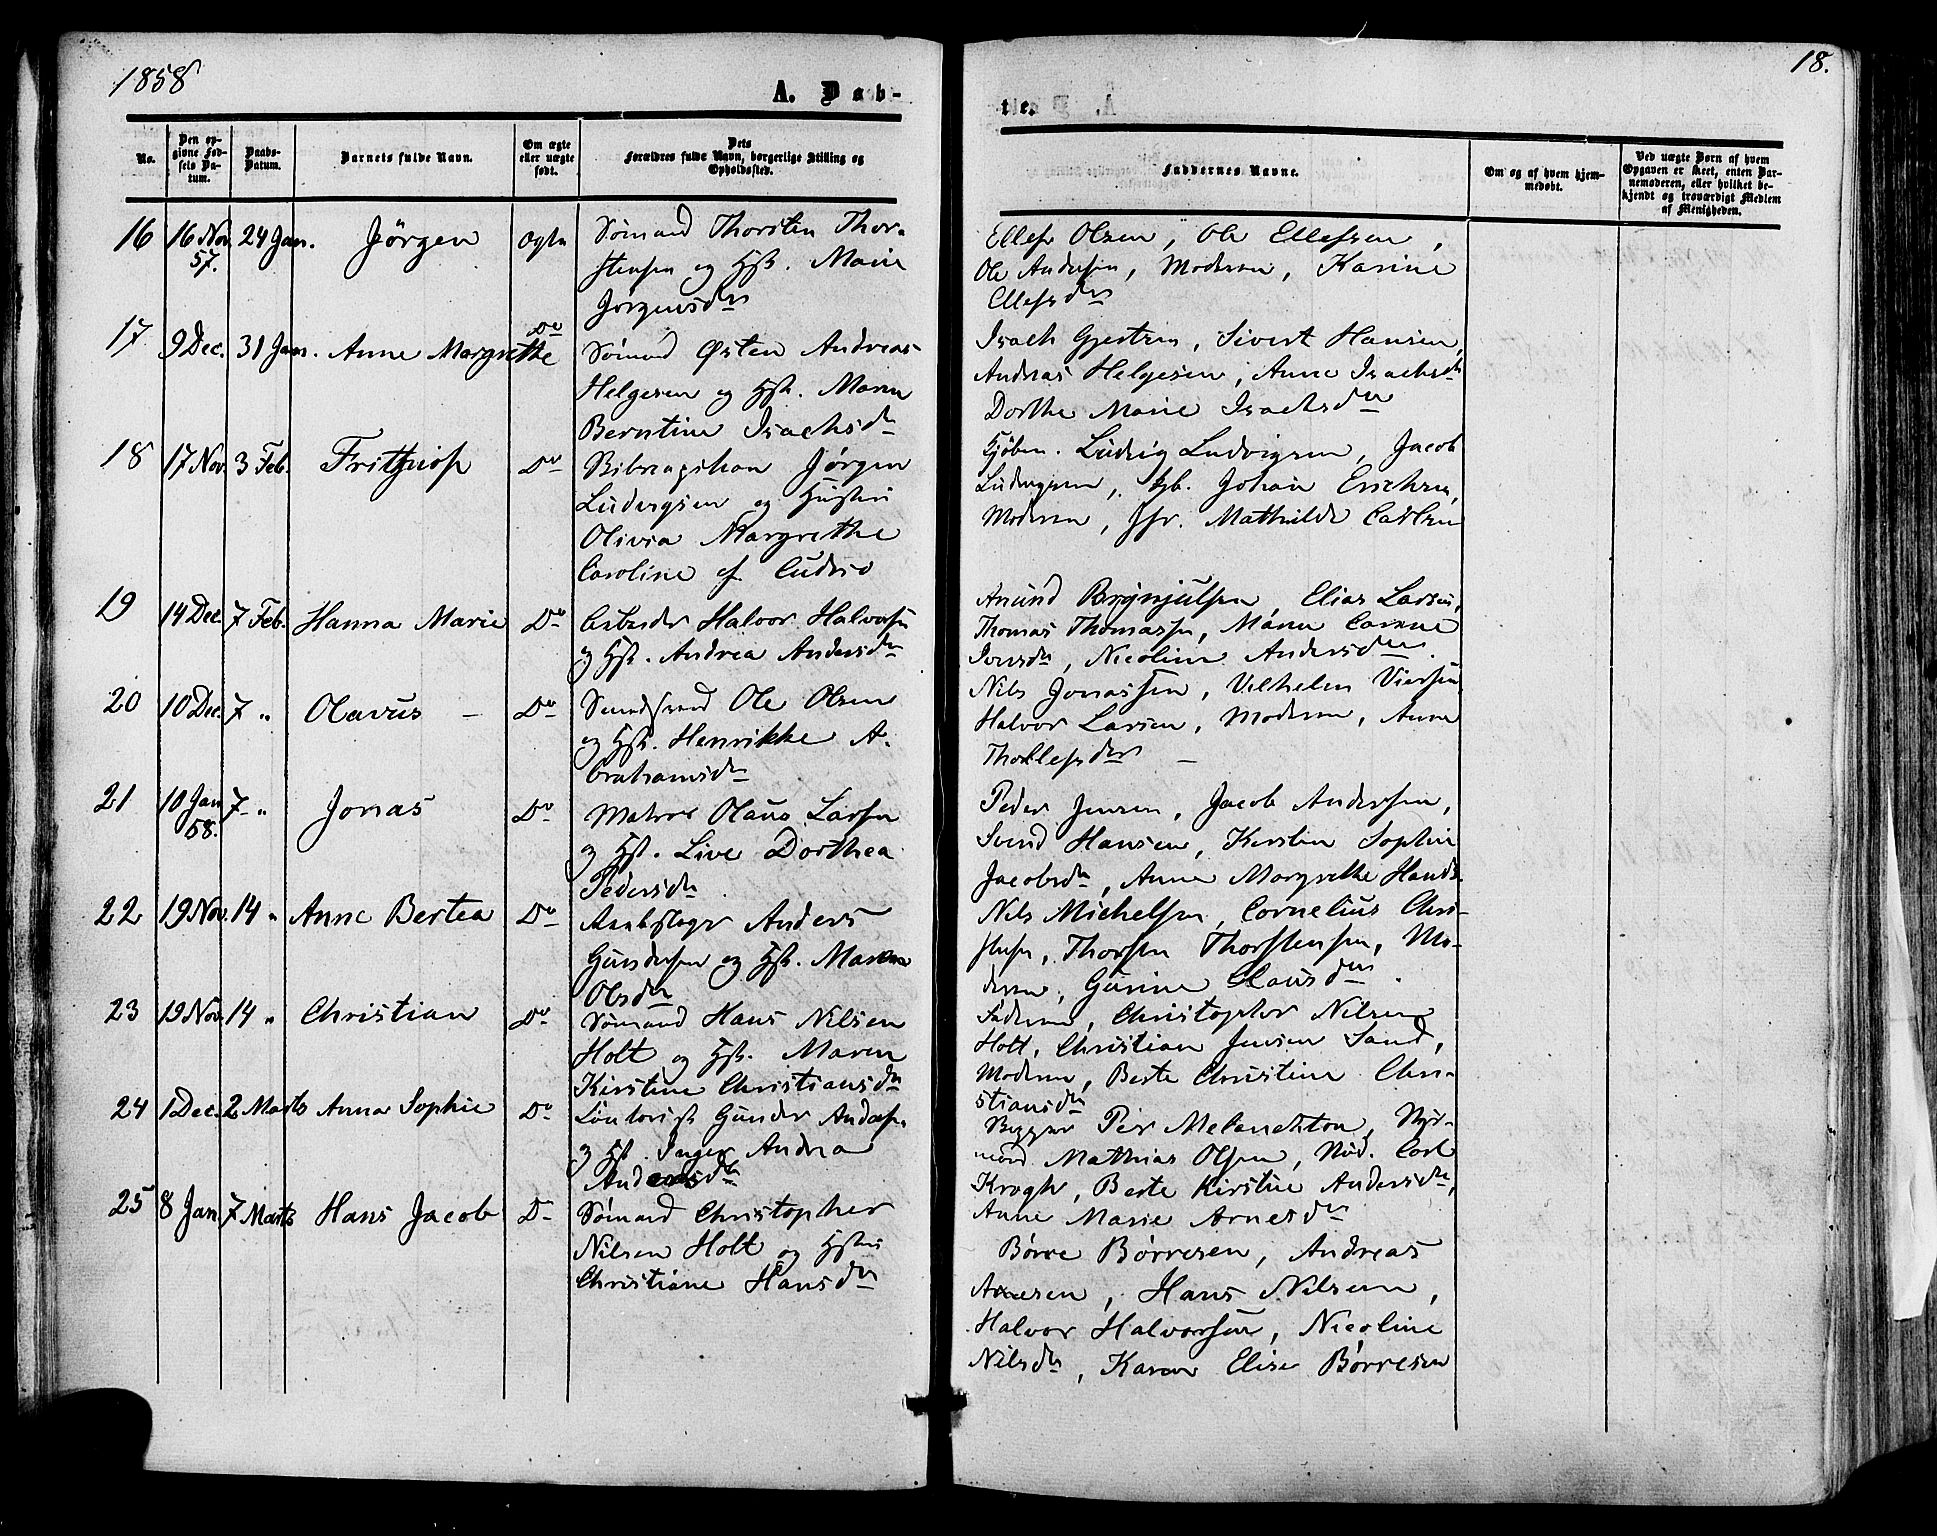 1858
18.
A. Dab-
te.
No.
Den op-
givne Fød-
sels Da-
tum.
Daabs-
Datum.
Barnets fulde Navn.
Om ægte
eller uægte
født.
Dets
Forældres fulde Navn, borgerlige Stilling og
Opholdssted.
Faddernes Navne.
Om og af hvem hjem-
medøbt.
Ved uægte Børn af hvem
Opgaven er skeet, enten Bar-
nemoderen, eller hvilket be-
kjendt og troværdigt Medlem
af Menigheden.
16 16 Nov. 57. 24 Jan. Jörgen ægte
Sömand Thorsten Thor-
stensen og Hst. Marie
Jörgensdtr
Ellef Olsen, Ole Ellefsen,
Ole Andersen, Moderen, Karine
Ellefsdtr
17 9 Dec. 31 Jan. Anne Margrethe Do
Sömand Østen Andreas
Helgesen og Hst. Maren
Berntine Isachsdtr
Isach Gjestsen, Sivert Hansen,
Andreas Helgesen, Anne Isachsdtr
Dorthe Marie Isachsdtr
18 17 Nov. 3 Feb. Frithjof Do
Jörgen
Ludvigsen og Hustru
Olivia Margrethe
Caroline f.
Kjöbm. Ludvig Ludvigsen, Jacob
Ludvigsen, kjb. Johan Erichsen,
Moderen, Jfr. Mathilde Carlsen
19 14 Dec. 7 Feb. Hanna Marie Do
Arbeider Halvor Halvorsen
og Hst. Andrea Andersdtr
Anund Brynjulsen, Elias Larsen,
Thomas Thomassen, Maren
Iversdtr, Nicoline Andersdtr.
20 10 Dec. 7 " Olavus - Do
Ole Olsen
og Hst. Henrikke A-
brahamsdtr
Nils Jonassen, Vilhelm
Halvor Larsen, Moderen, Anne
Thollefsdtr -
21 10 Jan 58. 7 - " Jonas Do
Matros Olaus Larsen
og Hst. Live Dorthea
Pedersdtr.
Peder Jensen, Jacob Andersen,
Svend Hansen, Kirsten Sophie
Jacobsdtr, Anne Margrethe Hansdtr.
22 19 Nov. 14 " Anne Bertea Do
Anders
Gundersen og Hst. Maren
Olsdtr
Nils Michelsen, Cornelius Chri-
stensen, Thorsten Thorstensen, Mo-
deren, Gunine Clausdtr.
23 19 Nov. 14 " Christian Do
Sömand Hans Nilsen
Holt og Hst. Maren
Kirstine Christiansdtr
Faderen, Christopher Nilsen
Holt, Christian Jensen Sand,
Moderen, Berte Christine Chri-
stiansdtr
24 1 Dec. 2 Marts Anna Sophie Do
Gunder Anders.
og Hst. Inger Andrea
Andersdtr
Bygger Per Melanchton,
Mathias Olsen, Carl
Krogh, Berte Kirstine Andersdtr,
Anne Marie Arnesdtr
25 8 Jan. 7 Marts Hans Jacob Do
Sömand Christopher
Nilsen Holt og Hstru
Christiane Hansdtr
Börre Börresen, Andreas
Hans Nilsen,
Halvor Halvorsen, Nicoline
Nilsdtr, Karen Elise Börresen